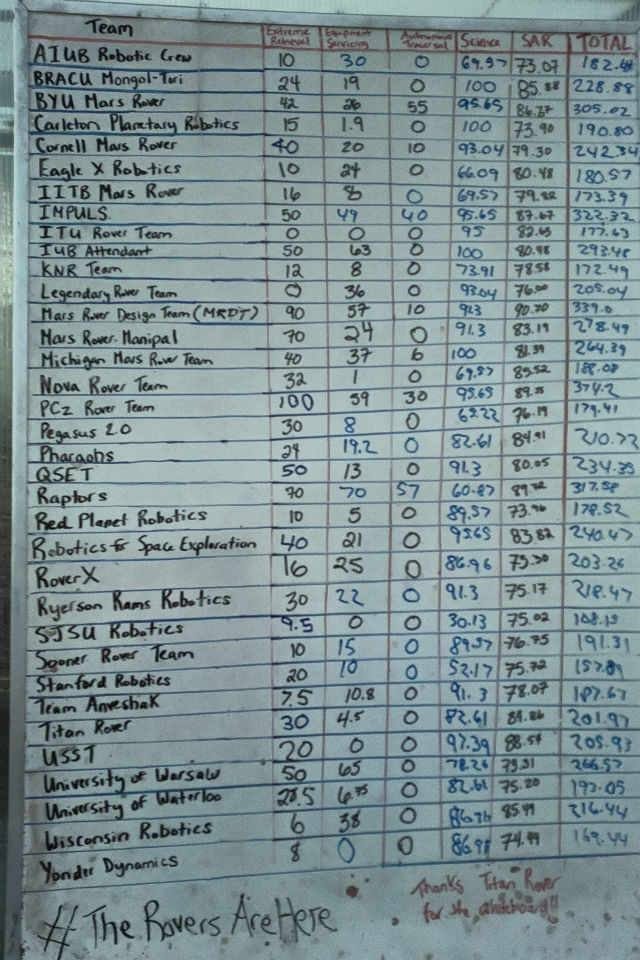 Team Extreme Retrieval Equipment Servicing Autonomous Traversal Science SAR TOTAL
AIUB Robotic Crew 10 30 0 69.57 73.07 182.64
BRACU Mongol-Tori 24 19 0 100 85.88 228.88
BYU Mars Rover 42 26 55 95.65 86.37 305.02
Carleton Planetary Robotics 15 1.9 0 100 73.90 190.80
Cornell Mars Rover 40 20 10 93.04 79.30 242.34
Eagle X Robotics 10 24 0 66.09 80.48 180.57
IITB Mars Rover 16 8 0 69.57 79.82 173.39
IMPULS 50 49 40 95.65 87.67 322.32
ITU Rover Team 0 0 0 95 82.63 177.63
IUB Attendant 50 63 0 100 80.48 293.48
KNR Team 12 8 0 73.91 78.58 172.49
Legendary Rover Team 0 36 0 93.04 76.00 205.04
Mars Rover Design Team (MRDT) 90 57 10 91.3 90.70 339.0
Mars Rover Manipal 70 24 0 91.3 83.19 278.49
Michigan Mars Rover Team 40 37 6 100 81.39 264.39
Nova Rover Team 32 1 0 69.57 85.52 188.08
PCz Rover Team 100 59 30 95.65 89.55 374.2
Pegasus 2.0 30 8 0 65.22 76.19 179.41
Pharaohs 24 19.2 0 82.61 84.91 210.72
QSET 50 13 0 91.3 80.05 234.35
Raptors 70 70 57 60.87 89.72 317.58
Red Planet Robotics 10 5 0 89.57 73.96 178.52
Robotics for Space Exploration 40 21 0 95.65 83.82 240.47
RoverX 16 25 0 86.96 75.30 203.26
Ryerson Rams Robotics 30 22 0 91.3 75.17 218.47
SJSU Robotics 9.5 0 0 30.13 75.02 108.15
Sooner Rover Team 10 15 0 89.57 76.75 191.31
Stanford Robotics 20 10 0 52.17 75.72 157.89
Team Anveshak 7.5 10.8 0 91.3 78.07 187.67
Titan Rover 30 4.5 0 82.61 84.86 201.97
USST 20 0 0 97.39 88.54 205.93
University of Warsaw 50 65 0 78.26 73.31 266.57
University of Waterloo 28.5 6.75 0 82.61 75.20 193.05
Wisconsin Robotics 6 38 0 86.96 85.49 216.44
Yonder Dynamics 8 0 0 86.95 74.49 169.44
Thanks Titan Rover
for the whiteboard!!
#TheRoversAreHere